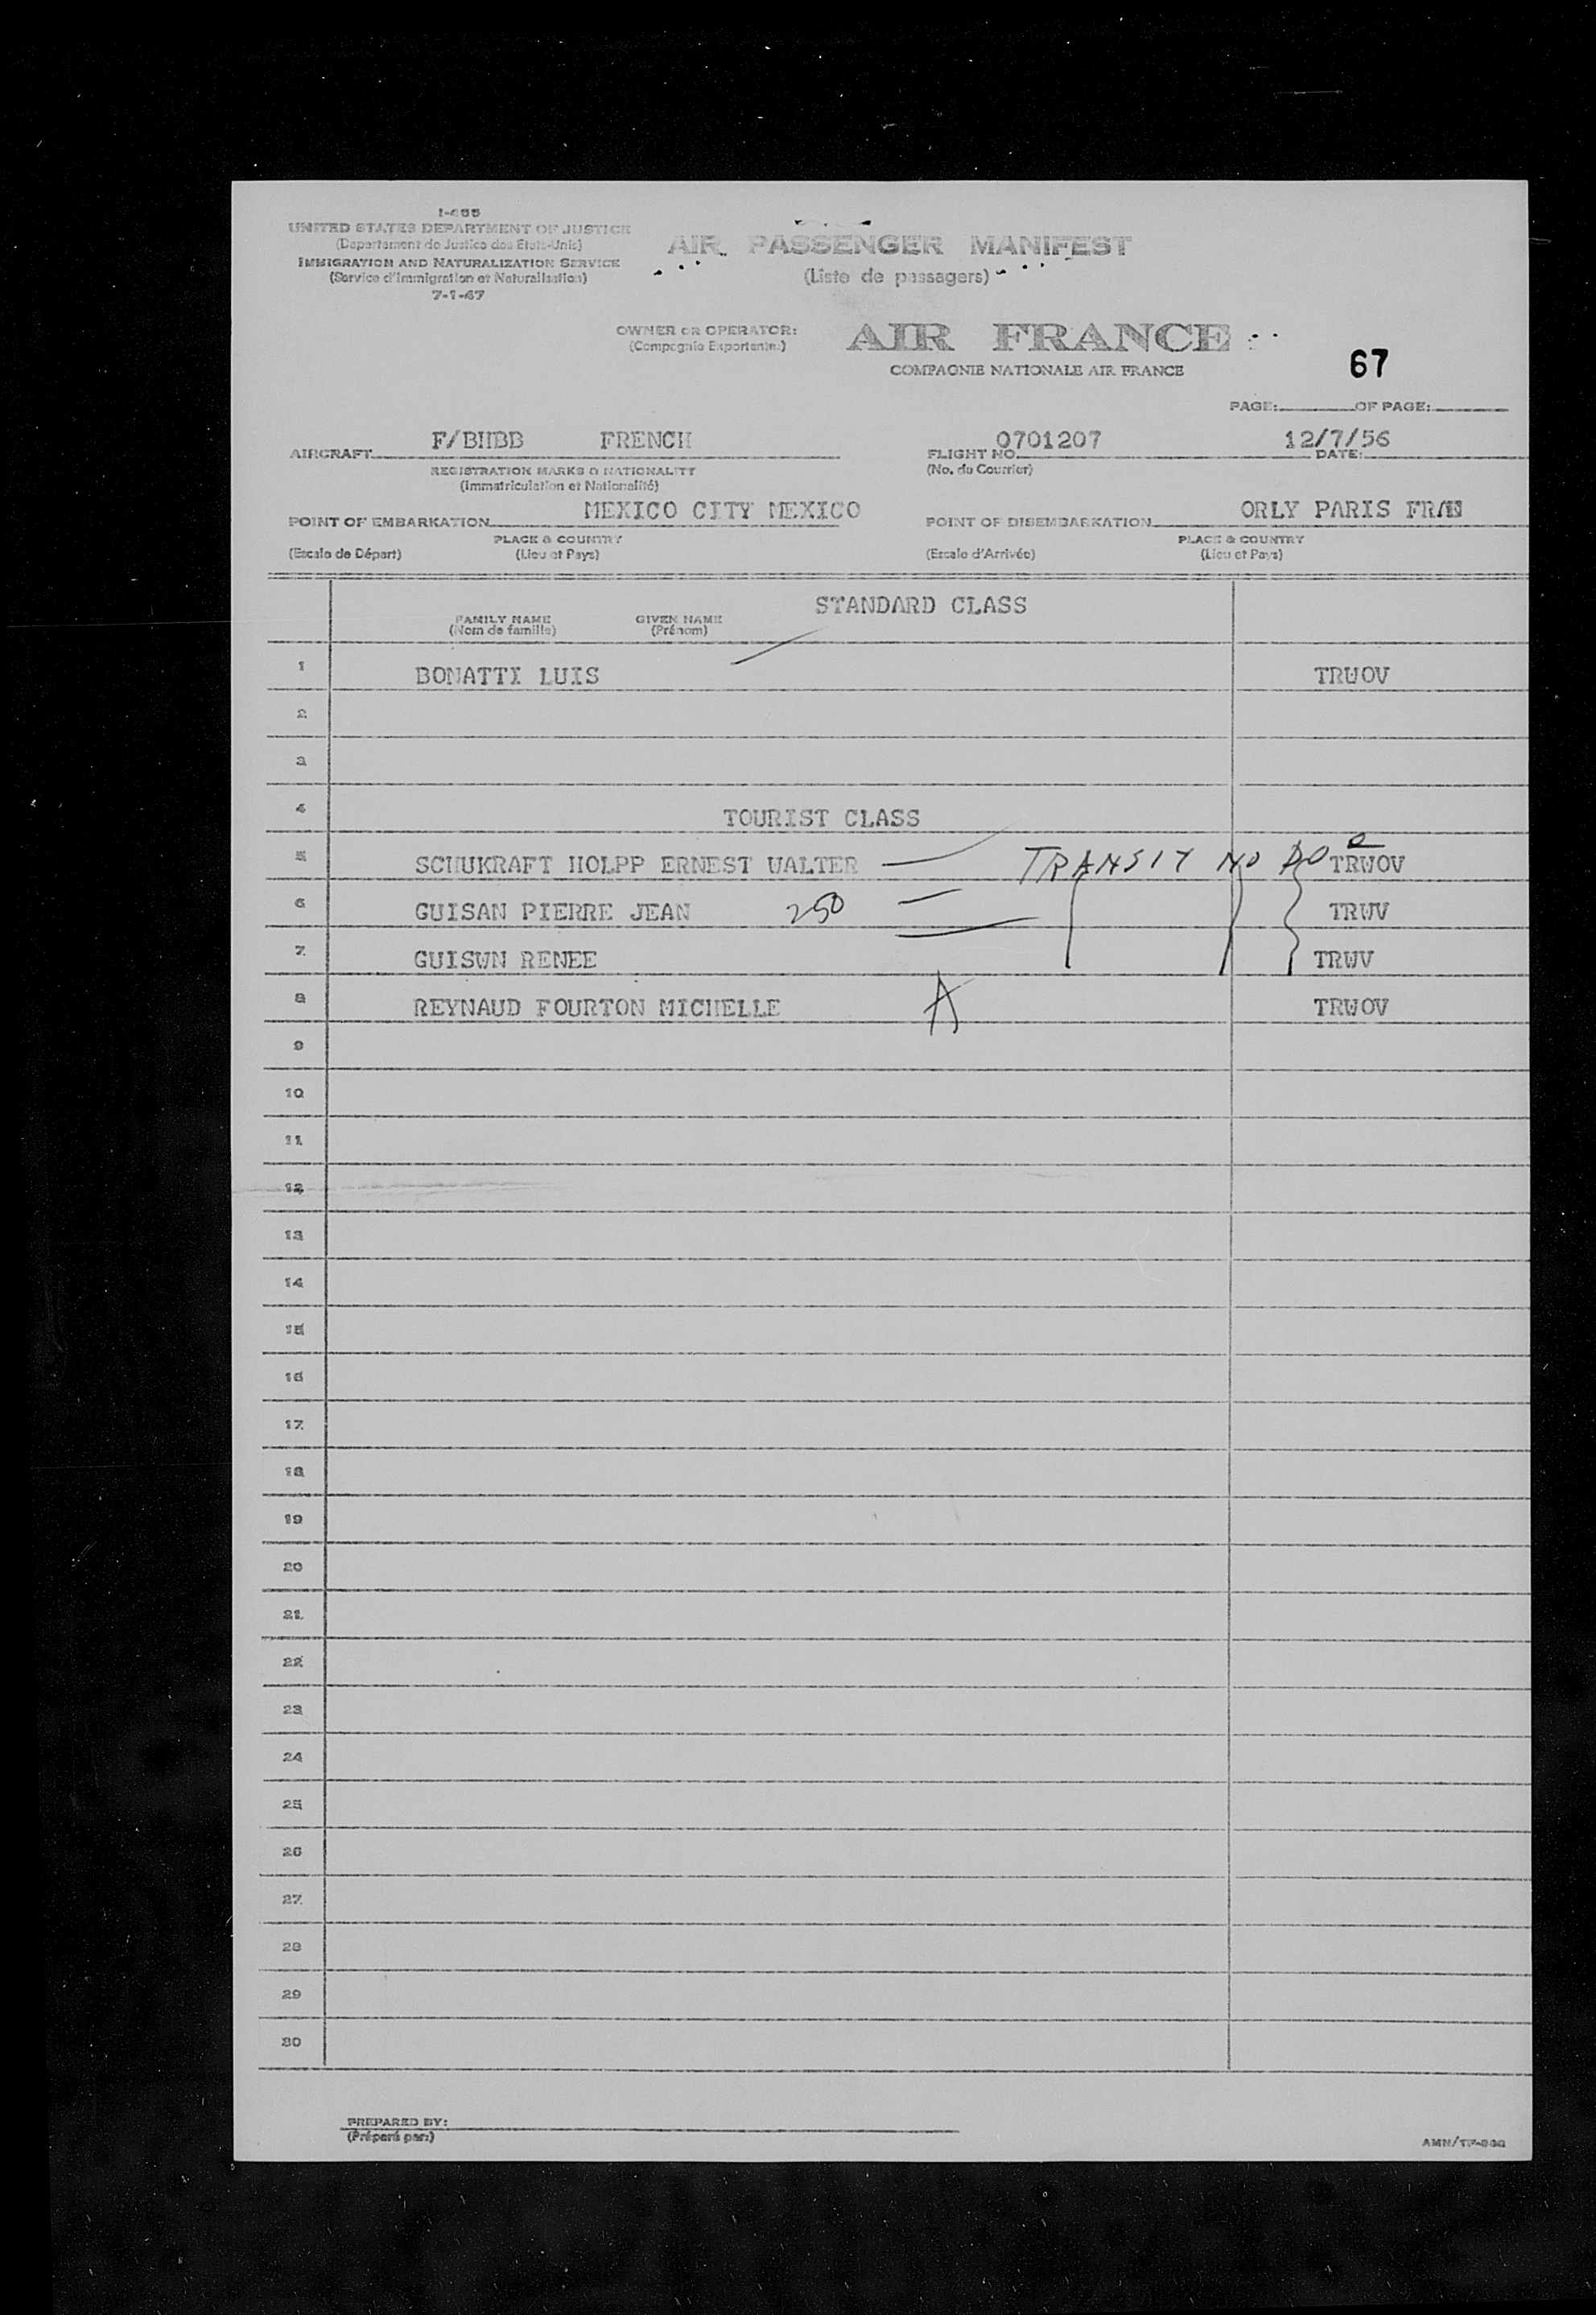 I-466
UNITED STATES DEPARTMENT OF JUSTICE
(Departement de Justice des Etats-Unis)
IMMIGRATION AND NATURALIZATION SERVICE
(Service d'Immigration et Naturalisation)
7-1-47
AIR PASSENGER MANIFEST
(Liste de passagers)
OWNER OR OPERATOR:
(Compagnie Exportante:)
AIR FRANCE
COMPAGNIE NATIONALE AIR FRANCE
67
PAGE: OF PAGE:
AIRCRAFT F/BHBB FRENCH FLIGHT NO. 0701207 DATE: 12/7/56
REGISTRATION MARKS & NATIONALITY (No. du Courrier)
(Immatriculation et Nationalité)
POINT OF EMBARKATION MEXICO CITY MEXICO POINT OF DISEMBARKATION ORLY PARIS FRAN
PLACE & COUNTRY PLACE & COUNTRY
(Escale de Départ) (Lieu et Pays) (Escale d'Arrivée) (Lieu et Pays)
STANDARD CLASS
FAMILY NAME GIVEN NAME
(Nom de famille) (Prénom)
1 BONATTI LUIS TRWOV
2
3
4 TOURIST CLASS
5 SCHUKRAFT HOLPP ERNEST WALTER TRANSIT NO TRWOV
6 GUISAN PIERRE JEAN 250 TRWV
7 GUISWN RENEE TRWV
8 REYNAUD FOURTON MICHELLE A TRWOV
9
10
11
12
13
14
15
16
17
18
19
20
21
22
23
24
25
26
27
28
29
30
PREPARED BY:
(Préparé par:)